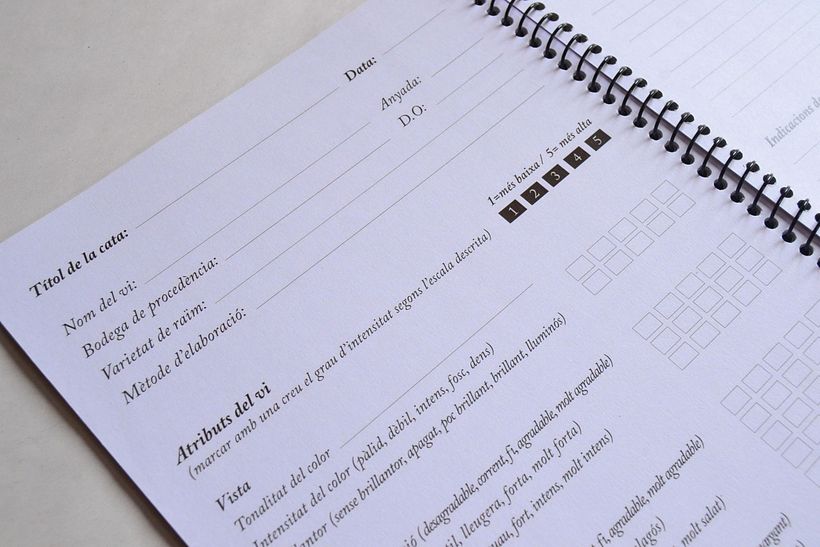 Títol de la cata: Data:
Nom del vi: Anyada:
Bodega de procedència: D.O:
Varietat de raïm:
Mètode d'elaboració:
Atributs del vi 1=més baixa / 5= més alta
(marcar amb una creu el grau d'intensitat segons l'escala descrita) 1 2 3 4 5
Vista
Tonalitat del color
Intensitat del color (pàlid, dèbil, intens, fosc, dens)
(sense brillantor, apagat, poc brillant, brillant, lluminós)
(desagradable, corrent, fi, agradable, molt agradable)
lleugera, forta, molt forta)
fort, intens, molt intens)
fi, agradable, molt agradable)
molt salat)
Indicacions